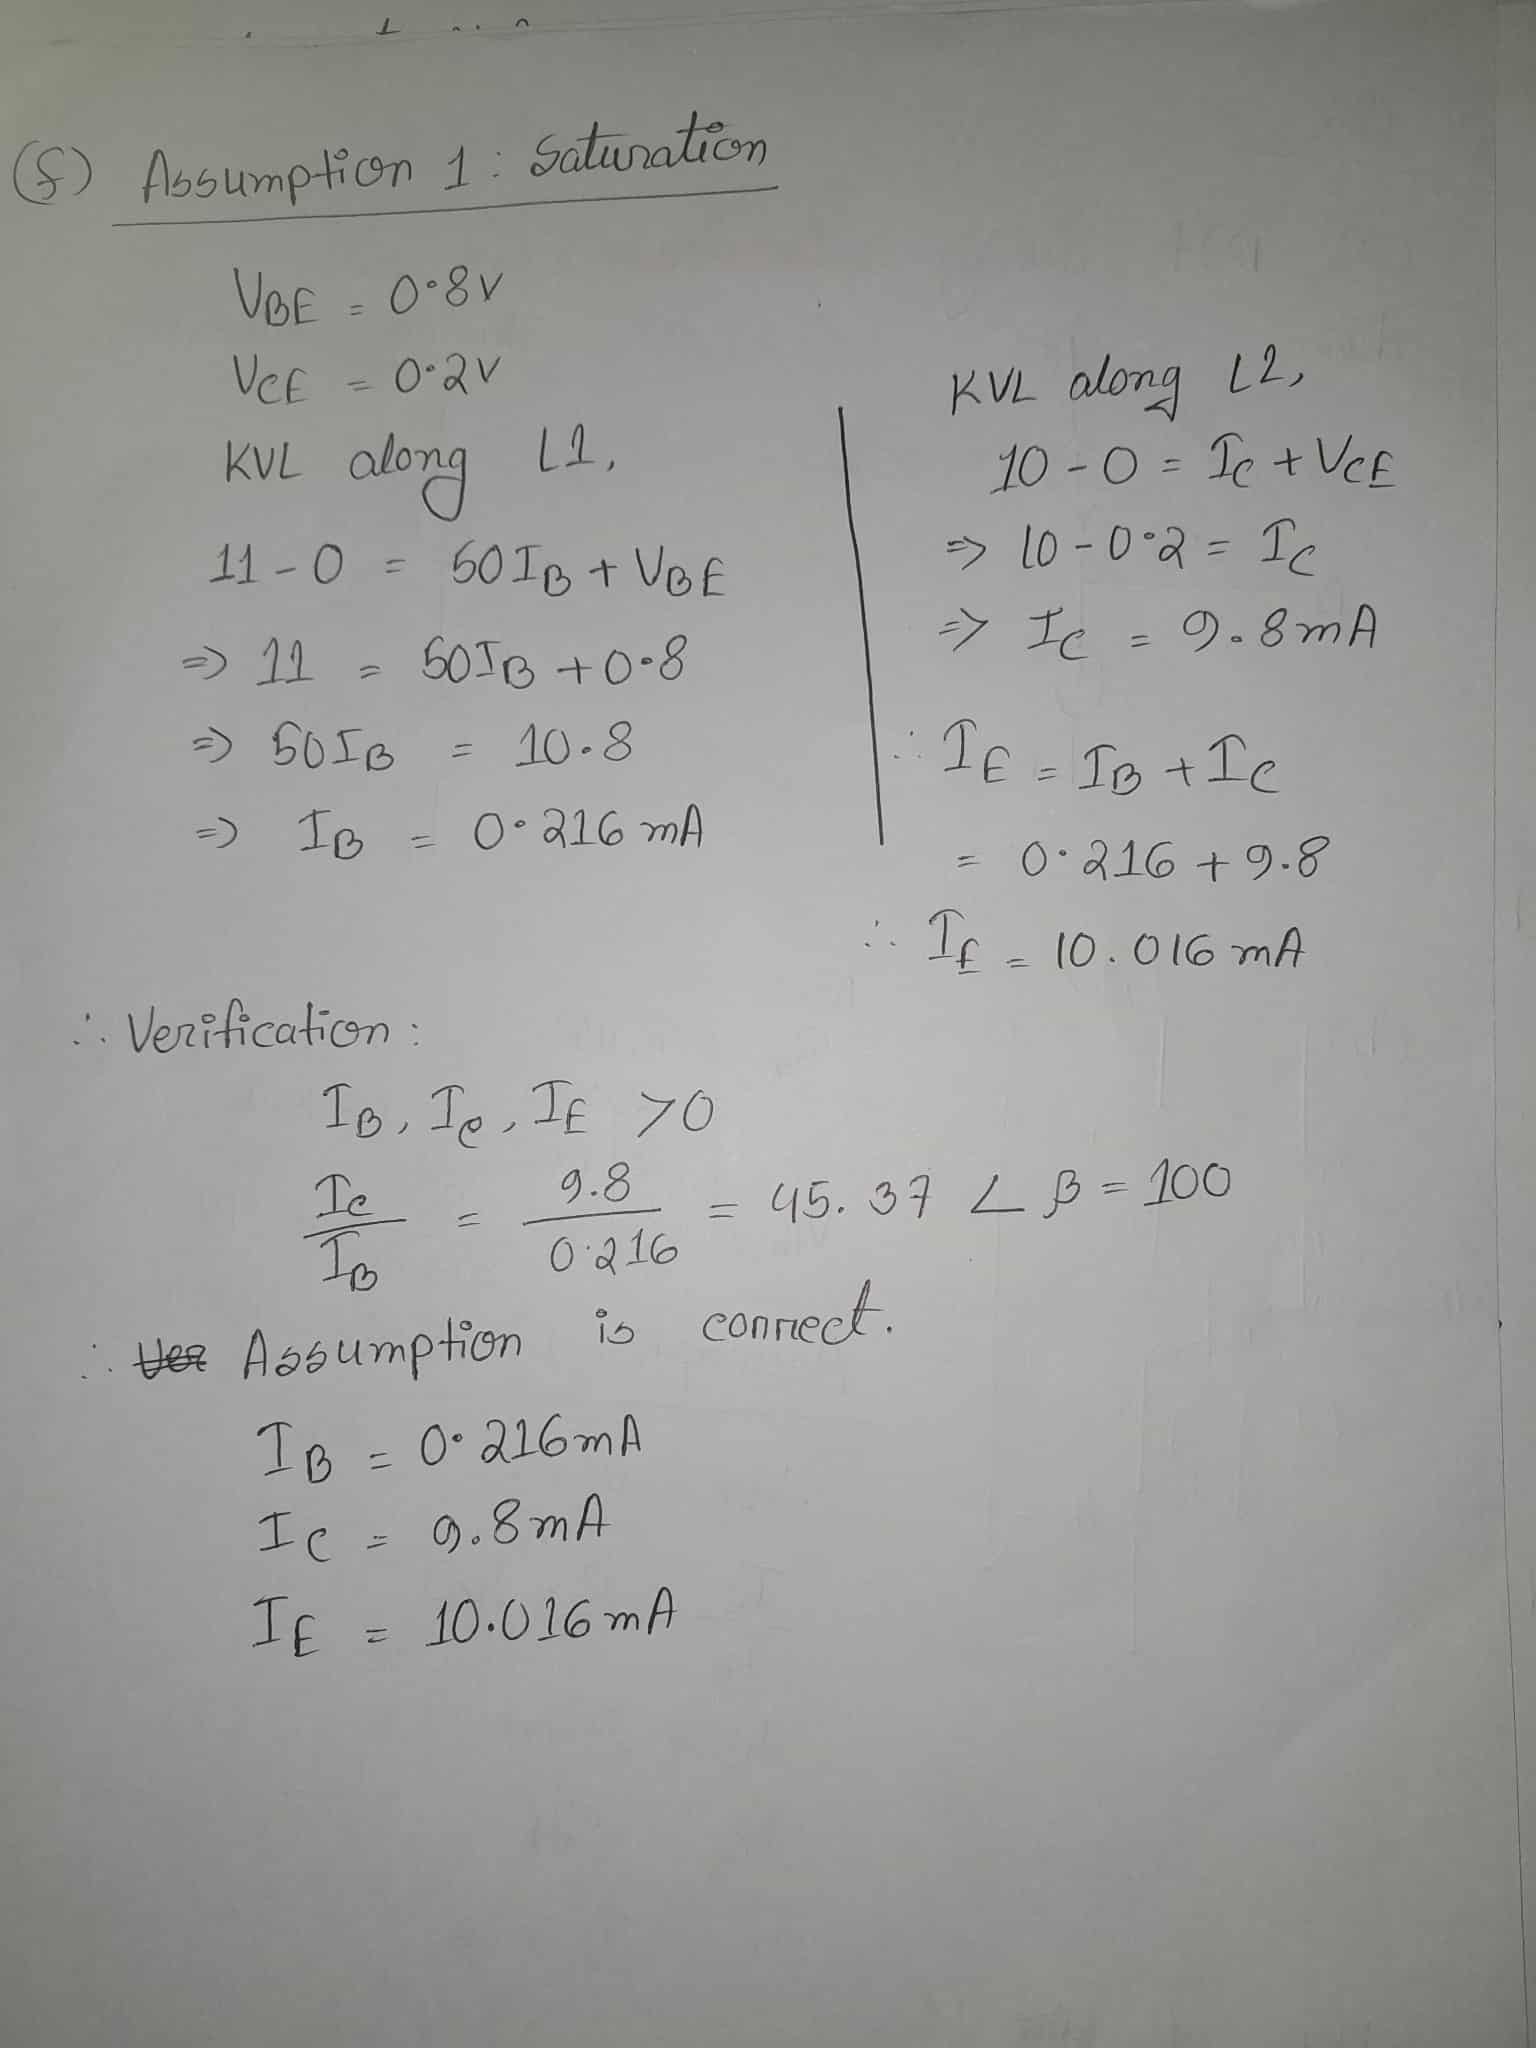 (f) Assumption 1: Saturation
VBE = 0.8V
VCE = 0.2V
KVL along L1,
11-0 = 50IB + VBE
=> 11 = 50IB + 0.8
=> 50IB = 10.8
=> IB = 0.216 mA
KVL along L2,
10-0 = IC + VCE
=> 10-0.2 = IC
=> IC = 9.8mA
∴ IE = IB + IC
= 0.216 + 9.8
∴ IE = 10.016 mA
∴ Verification:
IB, IC, IE >0
IC/IB = 9.8/0.216 = 45.37 < β = 100
∴ Ver Assumption is correct.
IB = 0.216mA
IC = 9.8mA
IE = 10.016mA